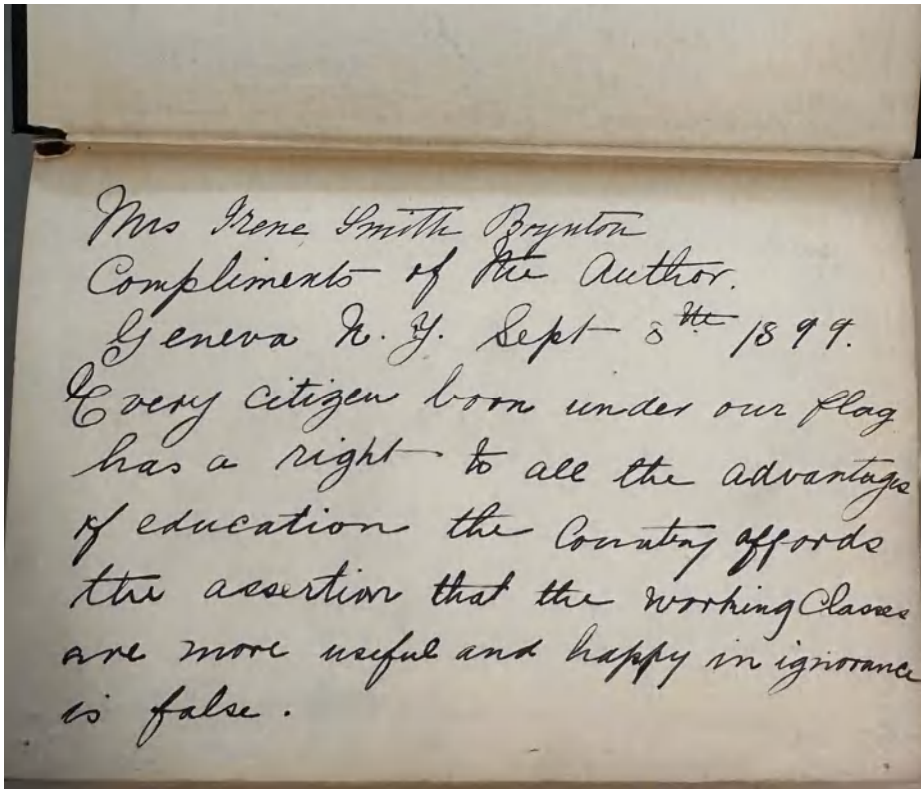 Mrs Irene Smith Boynton
Compliments of the Author.
Geneva N. Y. Sept 8the 1899.
Every citizen born under our flag
has a right to all the advantages
of education the Country affords
the assertion that the working Classes
are more useful and happy in ignorance
is false.